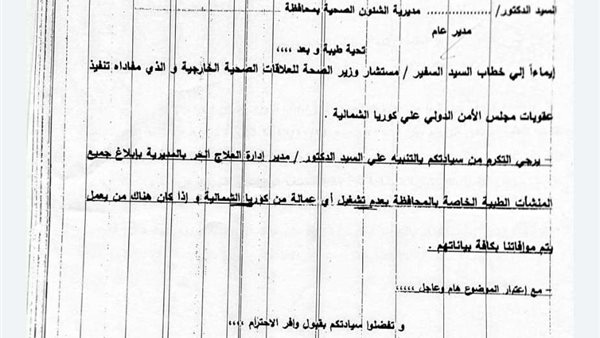 السيد الدكتور/ .................. مديرية الشئون الصحية بمحافظة
مدير عام
تحية طيبة و بعد ،،،،
إيماءاً إلي خطاب السيد السفير / مستشار وزير الصحة للعلاقات الصحية الخارجية و الذي مفاداه تنفيذ
عقوبات مجلس الأمن الدولي علي كوريا الشمالية .
– يرجي التكرم من سيادتكم بالتنبيه علي السيد الدكتور / مدير إدارة العلاج الحر بالمديرية بإبلاغ جميع
المنشأت الطبية الخاصة بالمحافظة بعدم تشغيل أي عمالة من كوريا الشمالية و إذا كان هناك من يعمل
يتم موافاتنا بكافة بياناتهم .
– مع إعتبار الموضوع هام وعاجل ،،،،،
و تفضلوا سيادتكم بقبول وافر الاحترام ،،،،